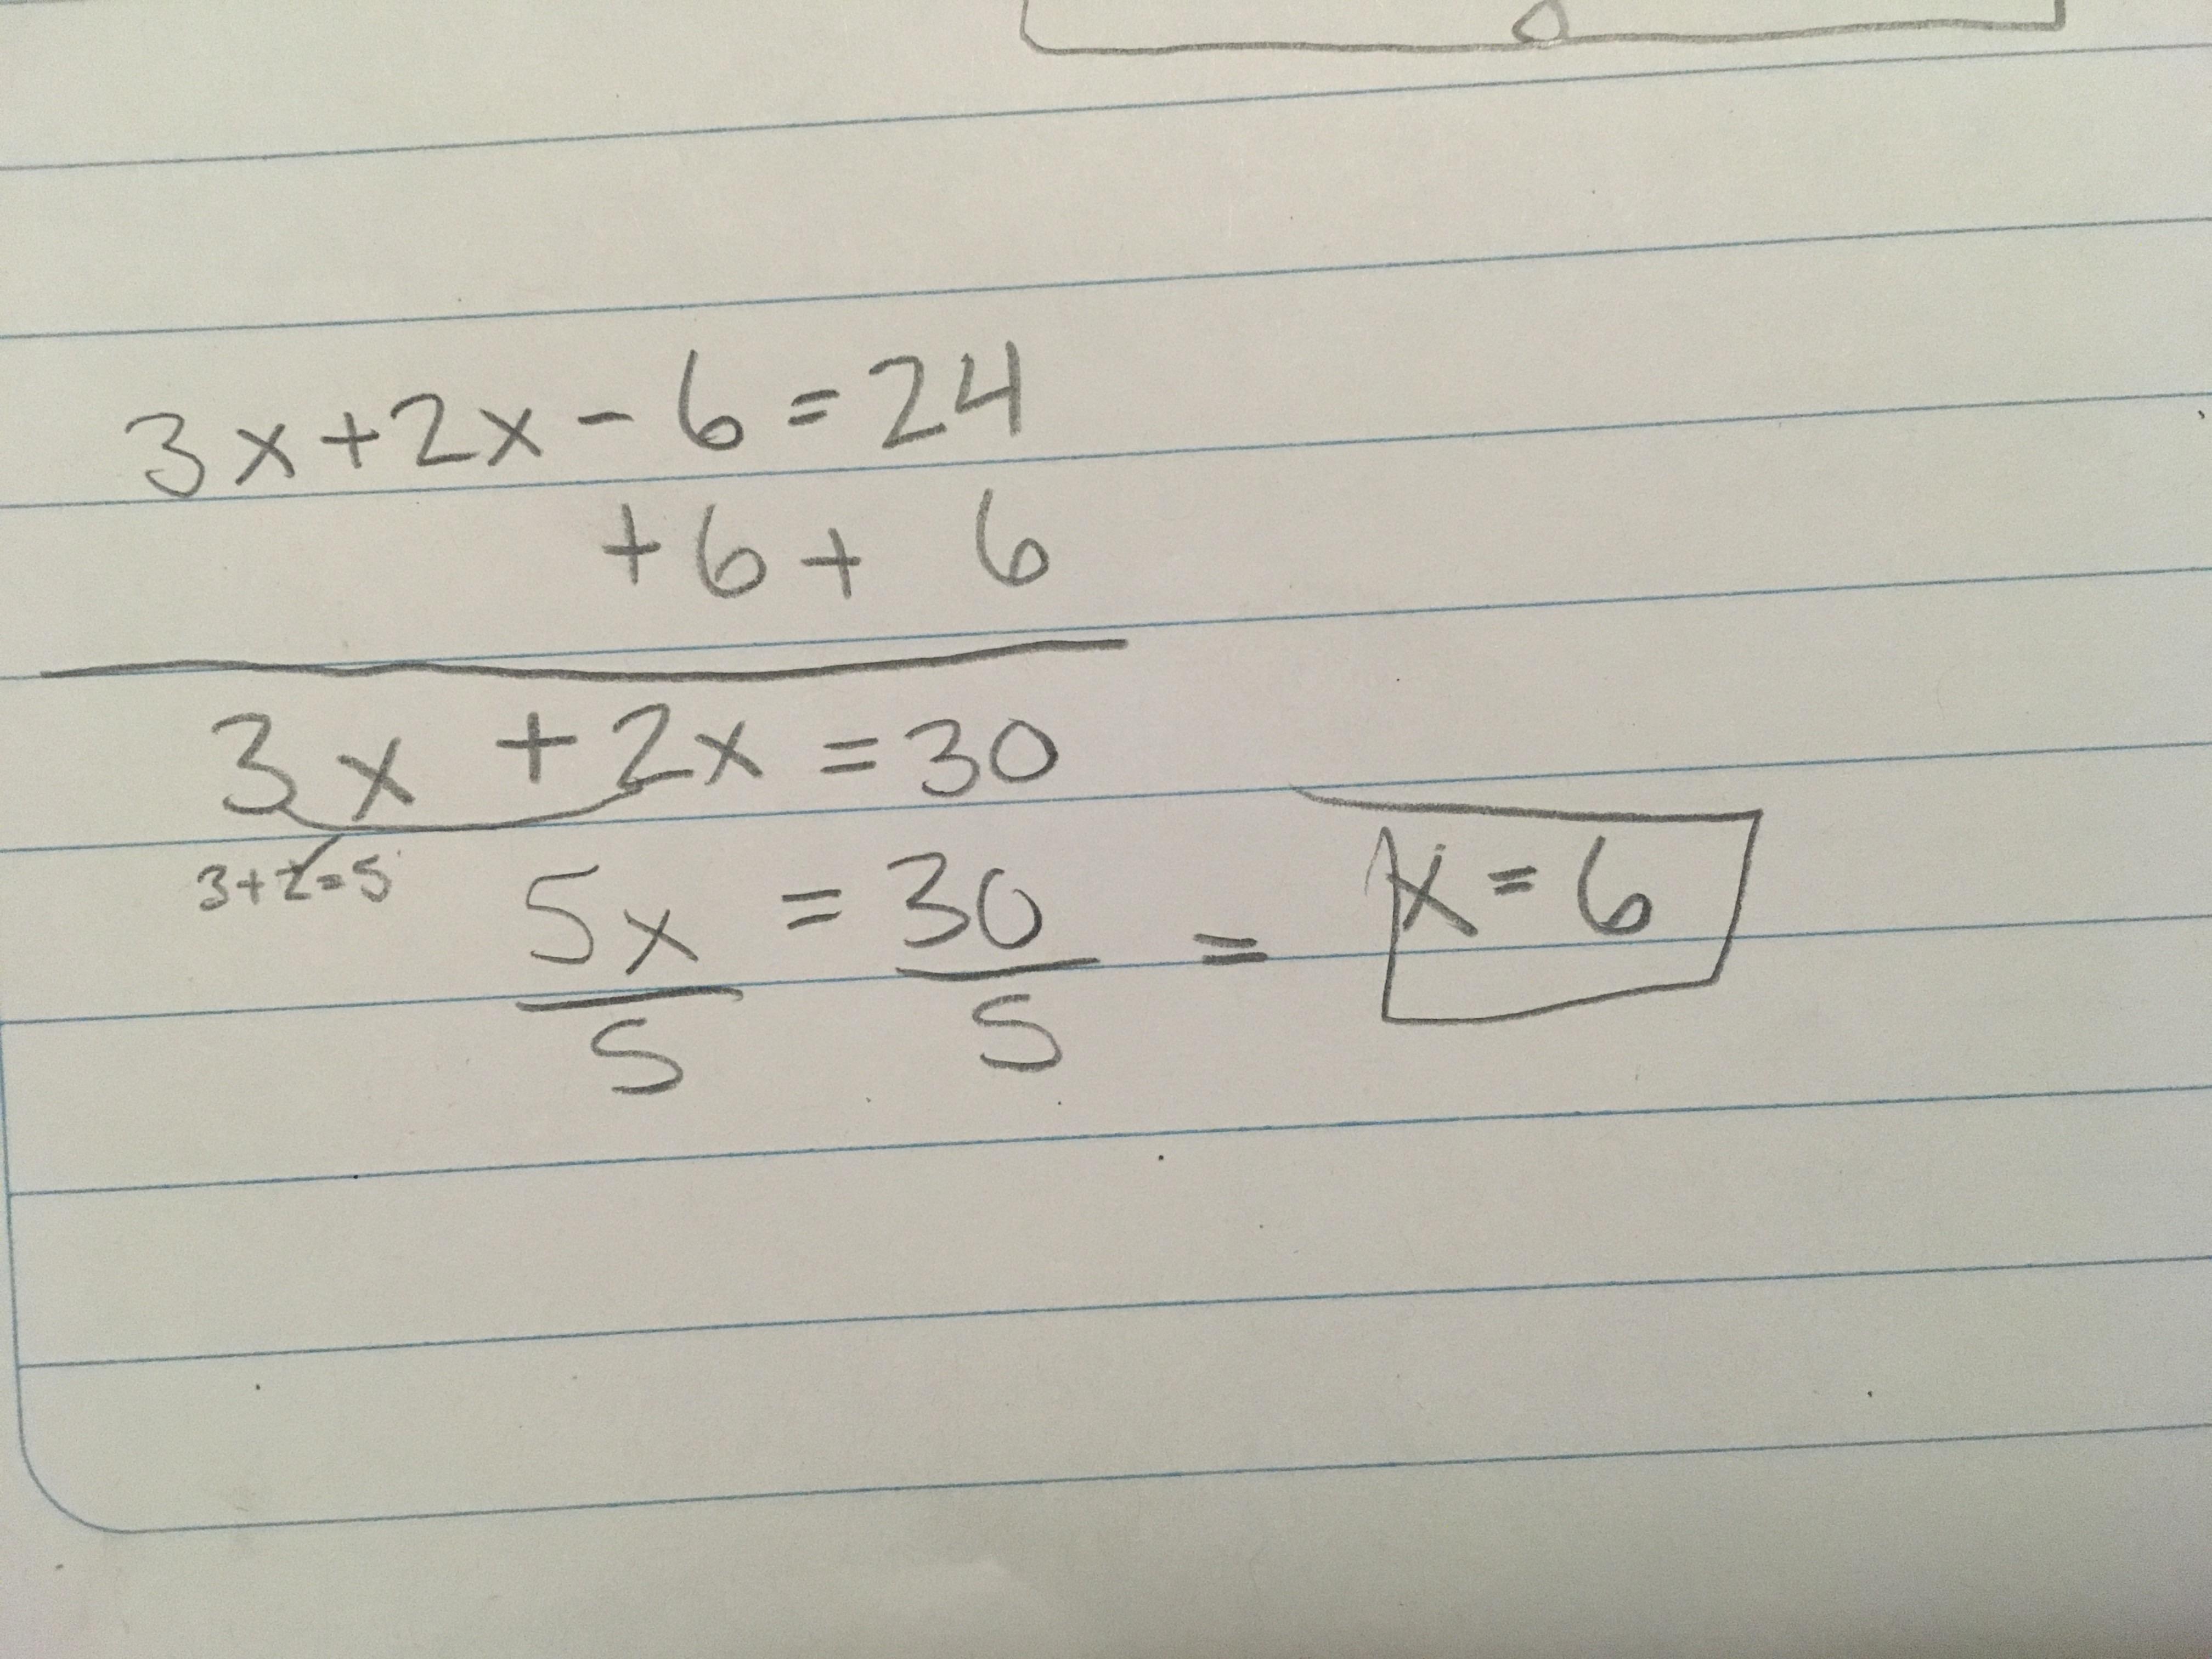 3x+2x-6=24
+6+ 6
3x +2x =30
3+2=5
5x/5 = 30/5 = x=6